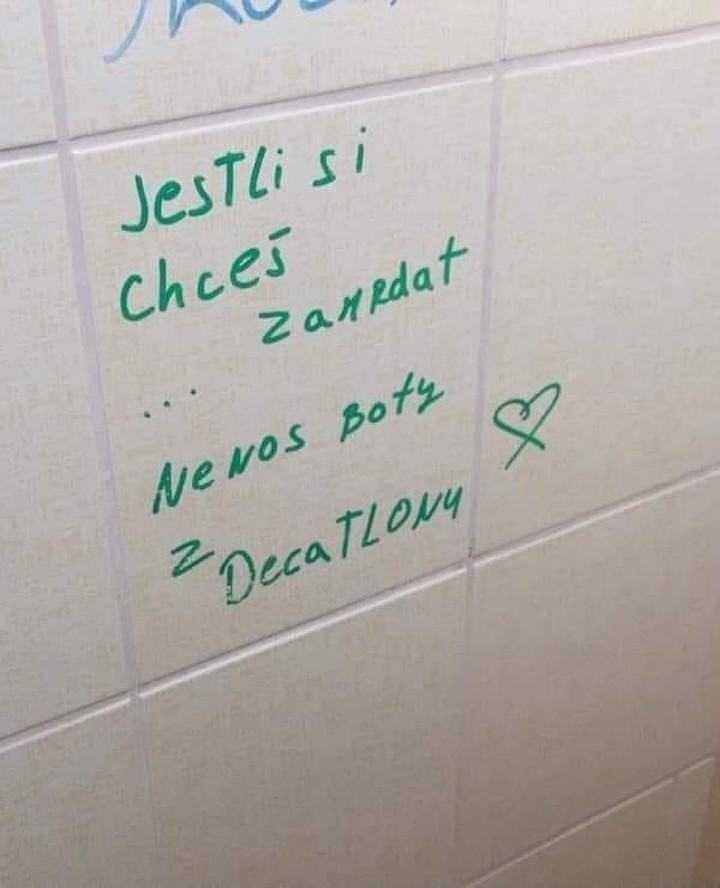 Jestli si
chceš
zamrdat
...
Nenos boty
z Decatlonu